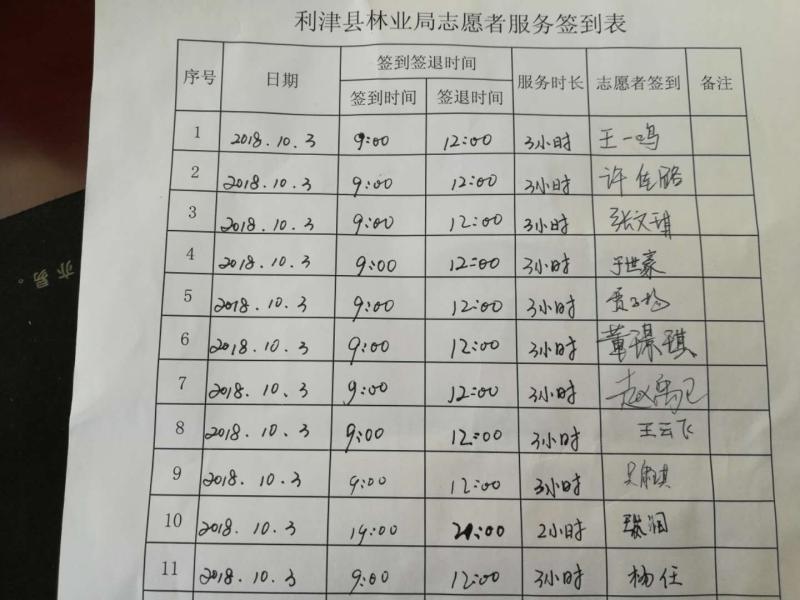 利津县林业局志愿者服务签到表
序号 日期 签到签退时间 服务时长 志愿者签到 备注
签到时间 签退时间
1 2018.10.3 9:00 12:00 3小时 王一鸣
2 2018.10.3 9:00 12:00 3小时 许佳璐
3 2018.10.3 9:00 12:00 3小时 张文琪
4 2018.10.3 9:00 12:00 3小时 于世豪
5 2018.10.3 9:00 12:00 3小时
6 2018.10.3 9:00 12:00 3小时 董璟琪
7 2018.10.3 9:00 12:00 3小时 赵禹
8 2018.10.3 9:00 12:00 3小时 王云飞
9 2018.10.3 9:00 12:00 3小时
10 2018.10.3 14:00 :00 2小时
11 2018.10.3 9:00 12:00 3小时 杨任
亦易。